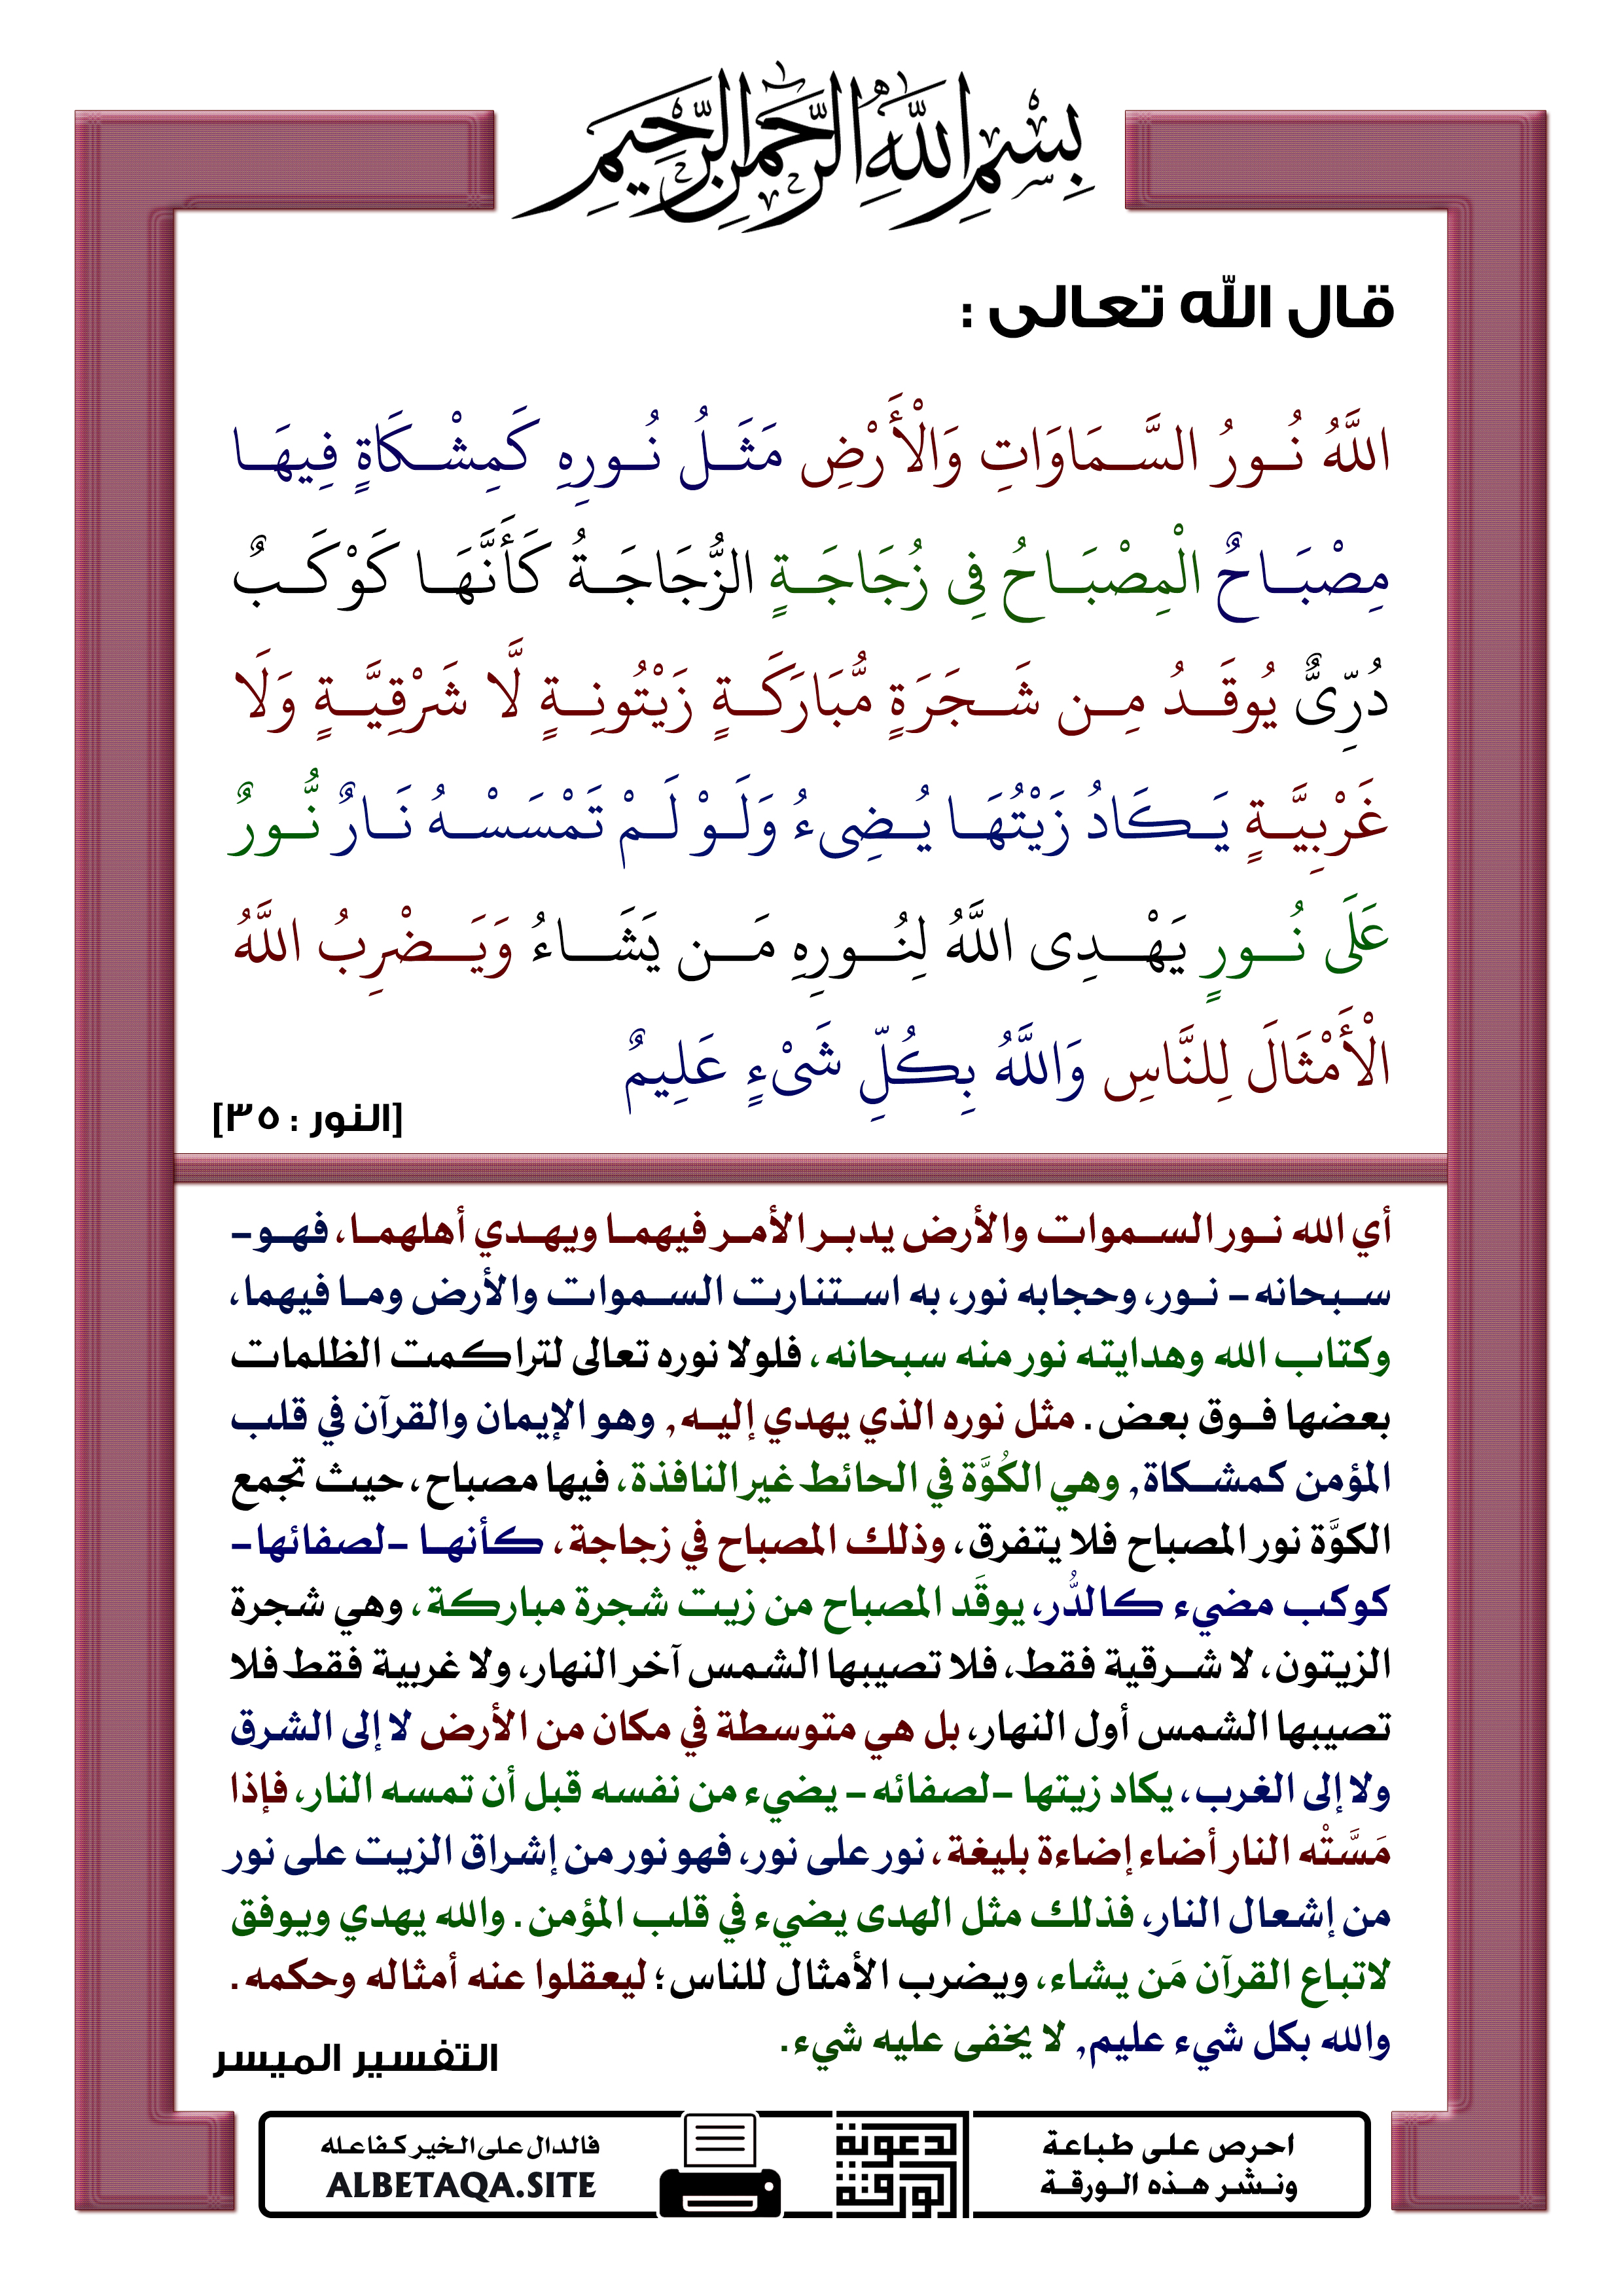 بِسْمِ اللَّهِ الرَّحْمَنِ الرَّحِيمِ
قال الله تعالى :
اللَّهُ نُورُ السَّمَاوَاتِ وَالْأَرْضِ مَثَلُ نُورِهِ كَمِشْكَاةٍ فِيهَا
مِصْبَاحٌ الْمِصْبَاحُ فِي زُجَاجَةٍ الزُّجَاجَةُ كَأَنَّهَا كَوْكَبٌ
دُرِّيٌّ يُوقَدُ مِن شَجَرَةٍ مُّبَارَكَةٍ زَيْتُونِةٍ لَّا شَرْقِيَّةٍ وَلَا
غَرْبِيَّةٍ يَكَادُ زَيْتُهَا يُضِيءُ وَلَوْ لَمْ تَمْسَسْهُ نَارٌ نُّورٌ
عَلَى نُورٍ يَهْدِي اللَّهُ لِنُورِهِ مَن يَشَاءُ وَيَضْرِبُ اللَّهُ
الْأَمْثَالَ لِلنَّاسِ وَاللَّهُ بِكُلِّ شَيْءٍ عَلِيمٌ
[النور : ٣٥]
أي الله نور السموات والأرض يدبر الأمر فيهما ويهدي أهلهما، فهو-
سبحانه- نور، وحجابه نور، به استنارت السموات والأرض وما فيهما،
وكتاب الله وهدايته نور منه سبحانه، فلولا نوره تعالى لتراكمت الظلمات
بعضها فوق بعض. مثل نوره الذي يهدي إليه, وهو الإيمان والقرآن في قلب
المؤمن كمشكاة, وهي الكُوَّة في الحائط غير النافذة، فيها مصباح، حيث تجمع
الكوَّة نور المصباح فلا يتفرق، وذلك المصباح في زجاجة، كأنها -لصفائها-
كوكب مضيء كالدُّر، يوقَد المصباح من زيت شجرة مباركة، وهي شجرة
الزيتون، لا شرقية فقط، فلا تصيبها الشمس آخر النهار، ولا غربية فقط فلا
تصيبها الشمس أول النهار، بل هي متوسطة في مكان من الأرض لا إلى الشرق
ولا إلى الغرب، يكاد زيتها -لصفائه- يضيء من نفسه قبل أن تمسه النار، فإذا
مَسَّتْه النار أضاء إضاءة بليغة، نور على نور، فهو نور من إشراق الزيت على نور
من إشعال النار، فذلك مثل الهدى يضيء في قلب المؤمن. والله يهدي ويوفق
لاتباع القرآن مَن يشاء، ويضرب الأمثال للناس؛ ليعقلوا عنه أمثاله وحكمه.
والله بكل شيء عليم, لا يخفى عليه شيء.
التفسير الميسر
احرص على طباعة
ونشر هذه الورقة
الدعوية
الورقة
فالدال على الخير كفاعله
ALBETAQA.SITE